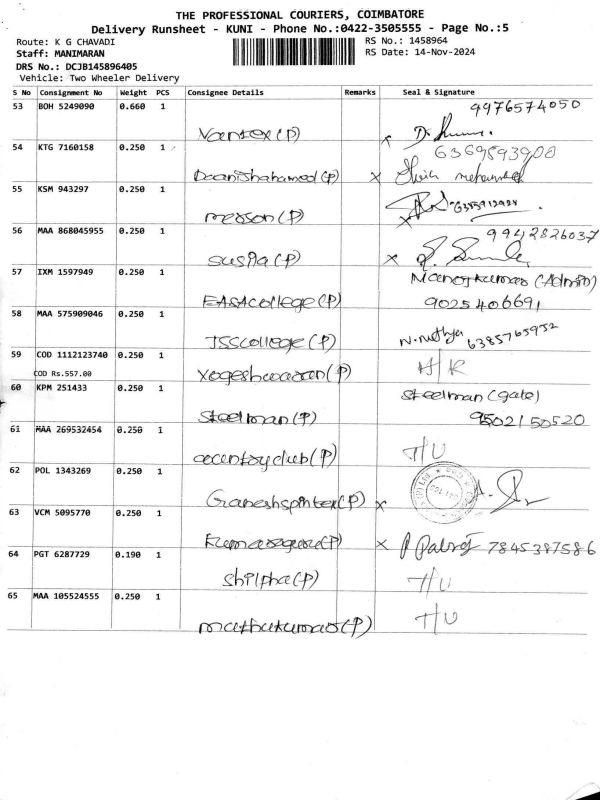 THE PROFESSIONAL COURIERS, COIMBATORE
Delivery Runsheet - KUNI - Phone No.:0422-3505555 - Page No.:5
Route: K G CHAVADI RS No.: 1458964
Staff: MANIMARAN RS Date: 14-Nov-2024
DRS No.: DCJB145896405
Vehicle: Two Wheeler Delivery
S No Consignment No Weight PCS Consignee Details Remarks Seal & Signature
53 BOH 5249090 0.660 1 9976574050
Vantex (P)
54 KTG 7160158 0.250 1 6369893908
Daanishahamed (P)
55 KSM 943297 0.250 1
merson (P)
56 MAA 868045955 0.250 1 9942826037
susila (P)
57 IXM 1597949 0.250 1 Manojkumar (Admin)
EASA college (P) 9025406691
58 MAA 575909046 0.250 1
JSScollege (P) N. nithya 6385765952
59 COD 1112123740 0.250 1 H/R
COD Rs.557.00 Yogeshwaran (P)
60 KPM 251433 0.250 1 Steelman (gate)
Steelman (P) 9502150520
61 MAA 269532454 0.250 1 T/U
ceuntryclub (P)
62 POL 1343269 0.250 1
Ganeshspintex (P)
63 VCM 5095770 0.250 1
Kumaraguru (P) 7845387586
64 PGT 6287729 0.190 1
Shilpha (P) T/U
65 MAA 105524555 0.250 1 T/U
muthukumar (P)